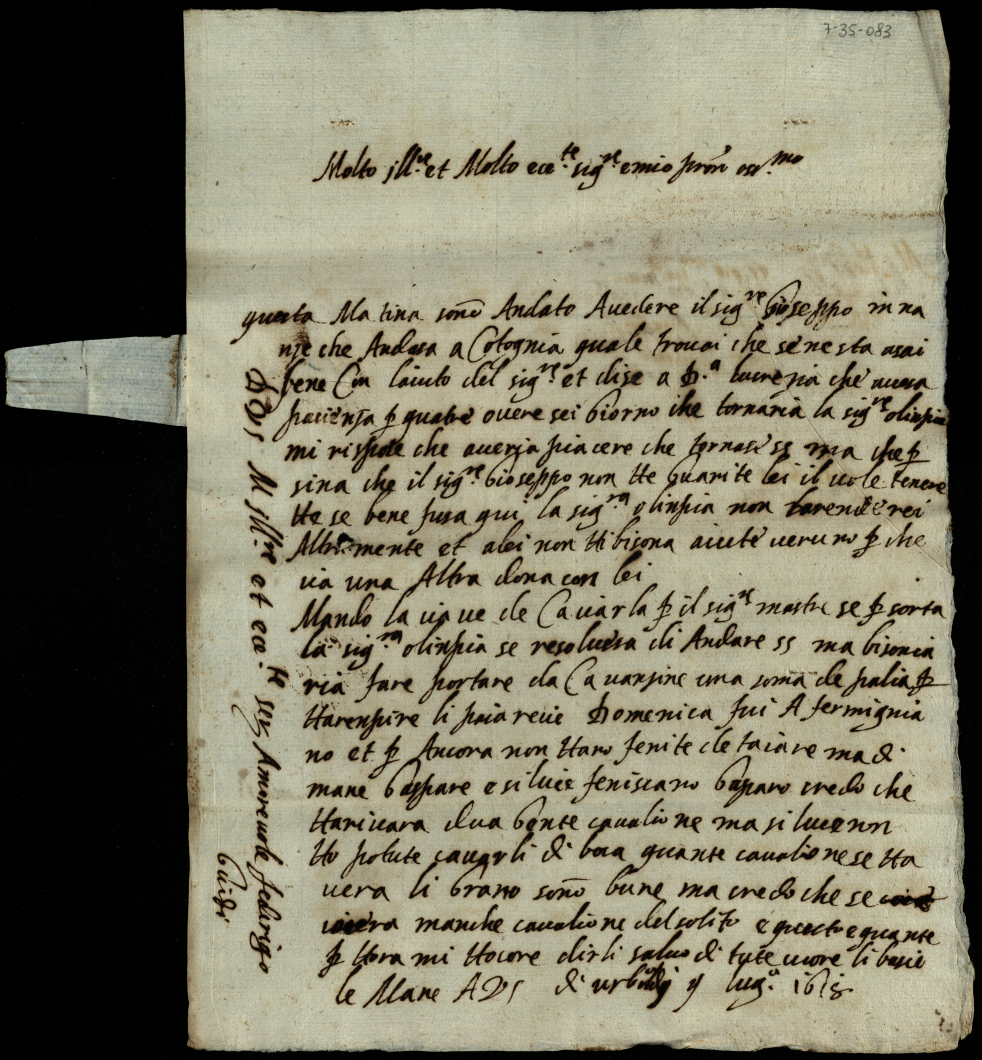 7-35-083
Molto ill.re et Molto ece.te sig.re e mio pron oss.mo
questa Matina sono Andato Avedere il sig.re Gioseppo in na
nje che Andasa a Cotognia quale trovai che se ne sta asai
bene Con laiuto del sig.re et dise a D.a lucrezia che avesa
pacienza p quatre overe sei Giorno che tornaria la sig.re olinpia
mi rispose che averia piacere che tornase ss ma che p
sina che il sig.re Gioseppo non He Guarite lei il vole tenere
He se bene fusa qui la sig.ra olinpia non
Altramente et alei non Hi bisona aiute veruno p che
via una Altra dona con lei
Mando la viave de Caviarla p il sig.re mastre se p sorta
la sig.ra olinpia se resolvesa di Andare ss ma bisonia
ria fare portare da Cavansine una soma de palia p
Harenpire li paiarecie Domenica fui A fermignia
no et p Ancora non Hano fenite de taiare ma di
mane Gaspare e silvie feniscano Gasparo credo che
Harivara dua Gente cavalione ma silvie non
Ho potute cavarli di boca quante cavalione se Ha
vera li Grano sono bune ma credo che se
vera manche cavalione del solito e questo e quante
p Hora mi Hocore dirli salvo di tute core li bacie
le Mane A DVS di urbino di 9 lug.o 1618
D VS M ill.re et ece.te ser Amorevole fedrigo
Guidi